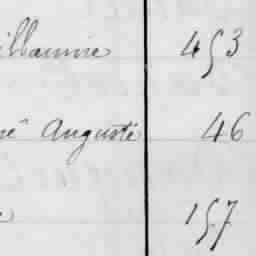 illaumie 453
né" Augusté 46
157